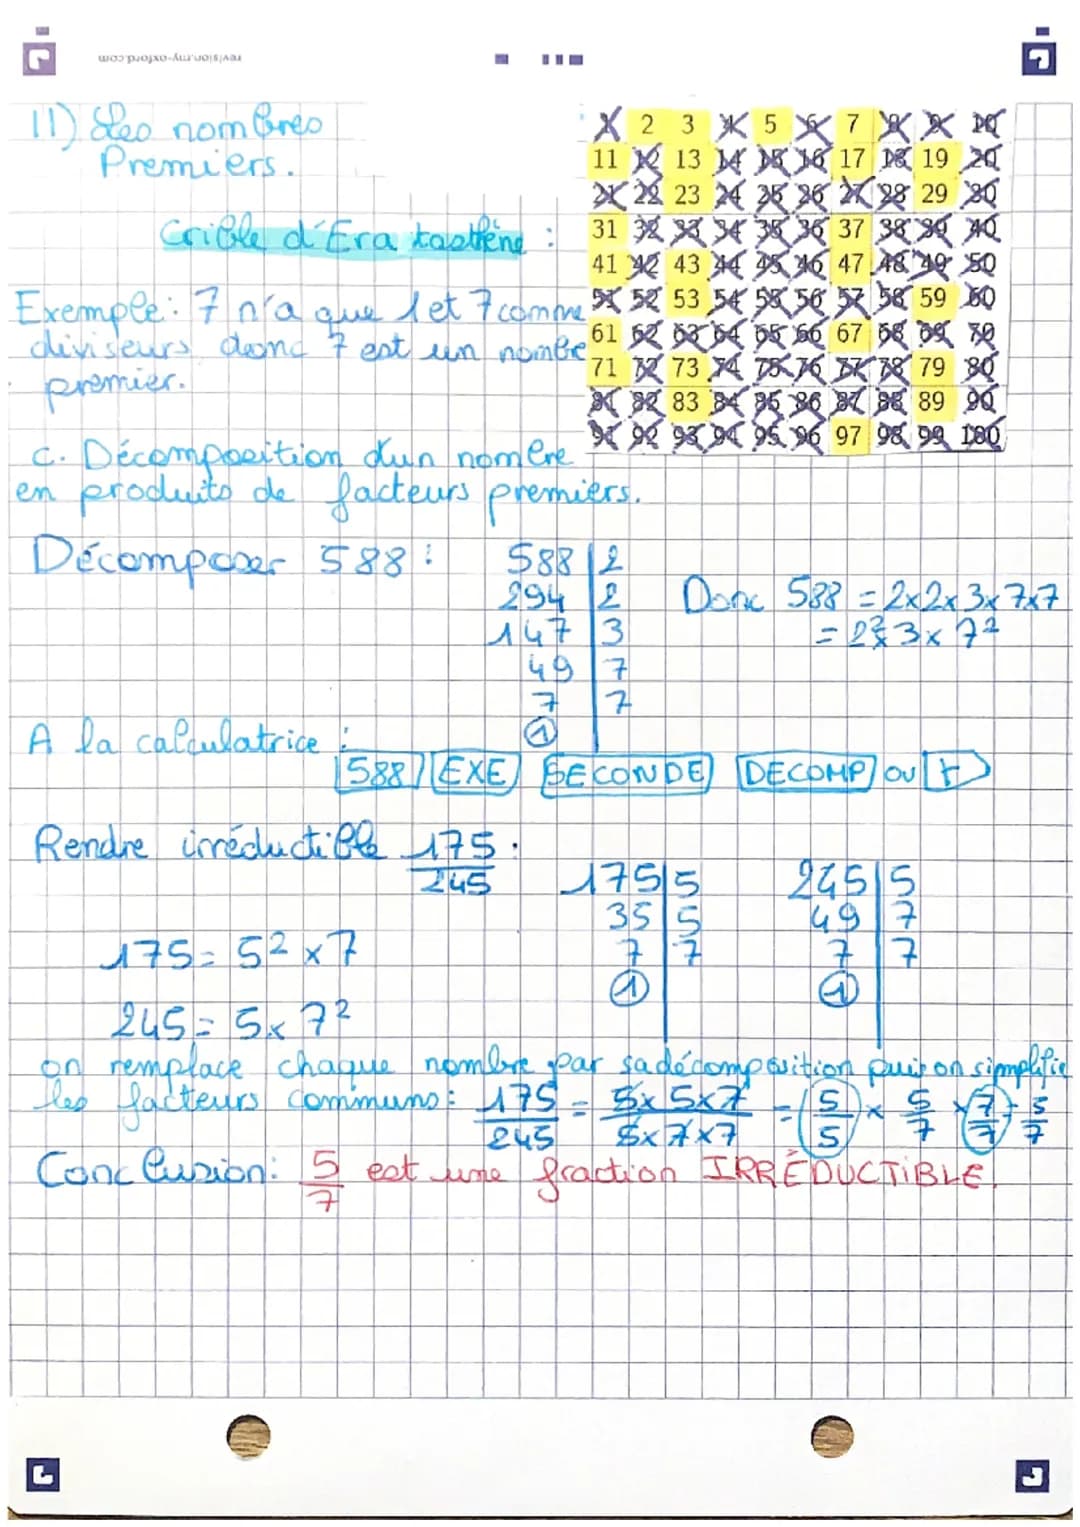 revision.my-oxford.com
11) Les nombres
Premiers.
Crible d'Eratosthène :
1 2 3 4 5 6 7 8 9 10
11 12 13 14 15 16 17 18 19 20
21 22 23 24 25 26 27 28 29 30
31 32 33 34 35 36 37 38 39 40
41 42 43 44 45 46 47 48 49 50
51 52 53 54 55 56 57 58 59 60
61 62 63 64 65 66 67 68 69 70
71 72 73 74 75 76 77 78 79 80
81 82 83 84 85 86 87 88 89 90
91 92 93 94 95 96 97 98 99 100
Exemple: 7 n'a que 1 et 7 comme
diviseurs donc 7 est un nombre
premier.
c. Décomposition d'un nombre
en produits de facteurs premiers.
Décomposer 588 :
588 | 2
294 | 2
147 | 3
49 | 7
7 | 7
1
Donc 588 = 2x2x3x7x7
= 2² x 3 x 7²
A la calculatrice :
588 EXE SECONDE DECOMP OU F
Rendre irréductible 175/245 :
175 | 5
35 | 5
7 | 7
1
245 | 5
49 | 7
7 | 7
1
175 = 5² x 7
245 = 5 x 7²
on remplace chaque nombre par sa décomposition puis on simplifie
les facteurs communs : 175/245 = 5x5x7/5x7x7 = 5/5 x 5/7 x 7/7 = 5/7
Conclusion: 5/7 est une fraction IRRÉDUCTIBLE.